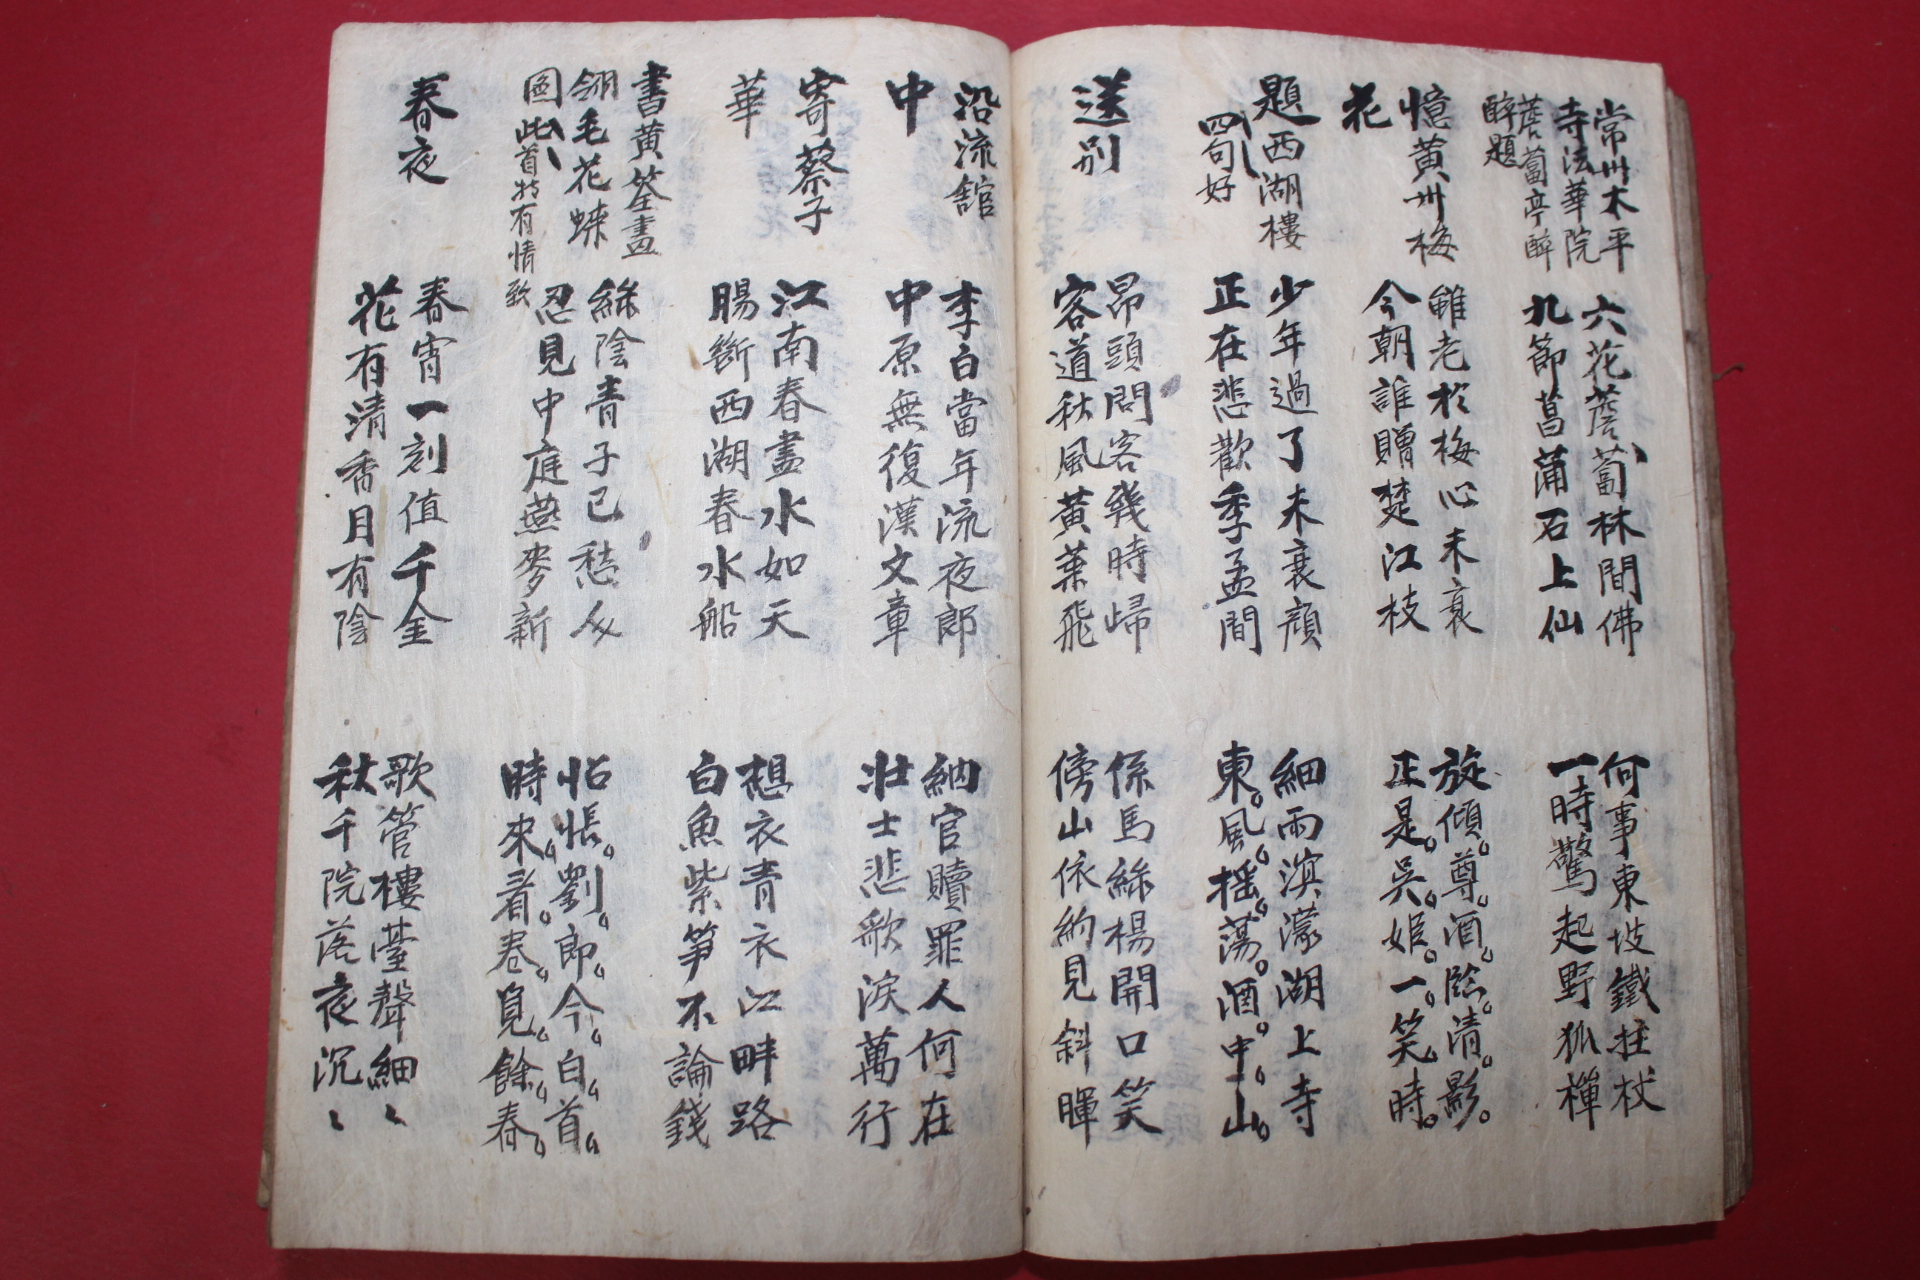 常州太平
寺法華院
薝蔔亭醉
醉題
六花薝蔔林間佛
九節菖蒲石上仙
何事東坡鐵拄杖
一時驚起野狐禪
憶黃州梅
花
雖老於梅心未衰
今朝誰贈楚江枝
旋傾尊酒臨清影
正是吳姬一笑時
題西湖樓
四句好
少年過了未衰顏
正在悲歡季孟間
細雨溟濛湖上寺
東風搖蕩酒中山
送別
昂頭問客幾時歸
客道秋風黃葉飛
係馬綠楊開口笑
傍山依約見斜暉
沿流館
中
李白當年流夜郎
中原無復漢文章
納官贖罪人何在
壯士悲歌淚萬行
寄蔡子
華
江南春盡水如天
腸斷西湖春水船
想衣青衣江畔路
白魚紫笋不論錢
書黃筌畫
翎毛花蝶
圖此首ㄝ有情致
綠陰青子已愁人
忍見中庭燕麥新
怊悵劉郎今白首
時來看卷覓餘春
春夜
春宵一刻值千金
花有清香月有陰
歌管樓臺聲細ヽ
秋千院落夜沉ヽ